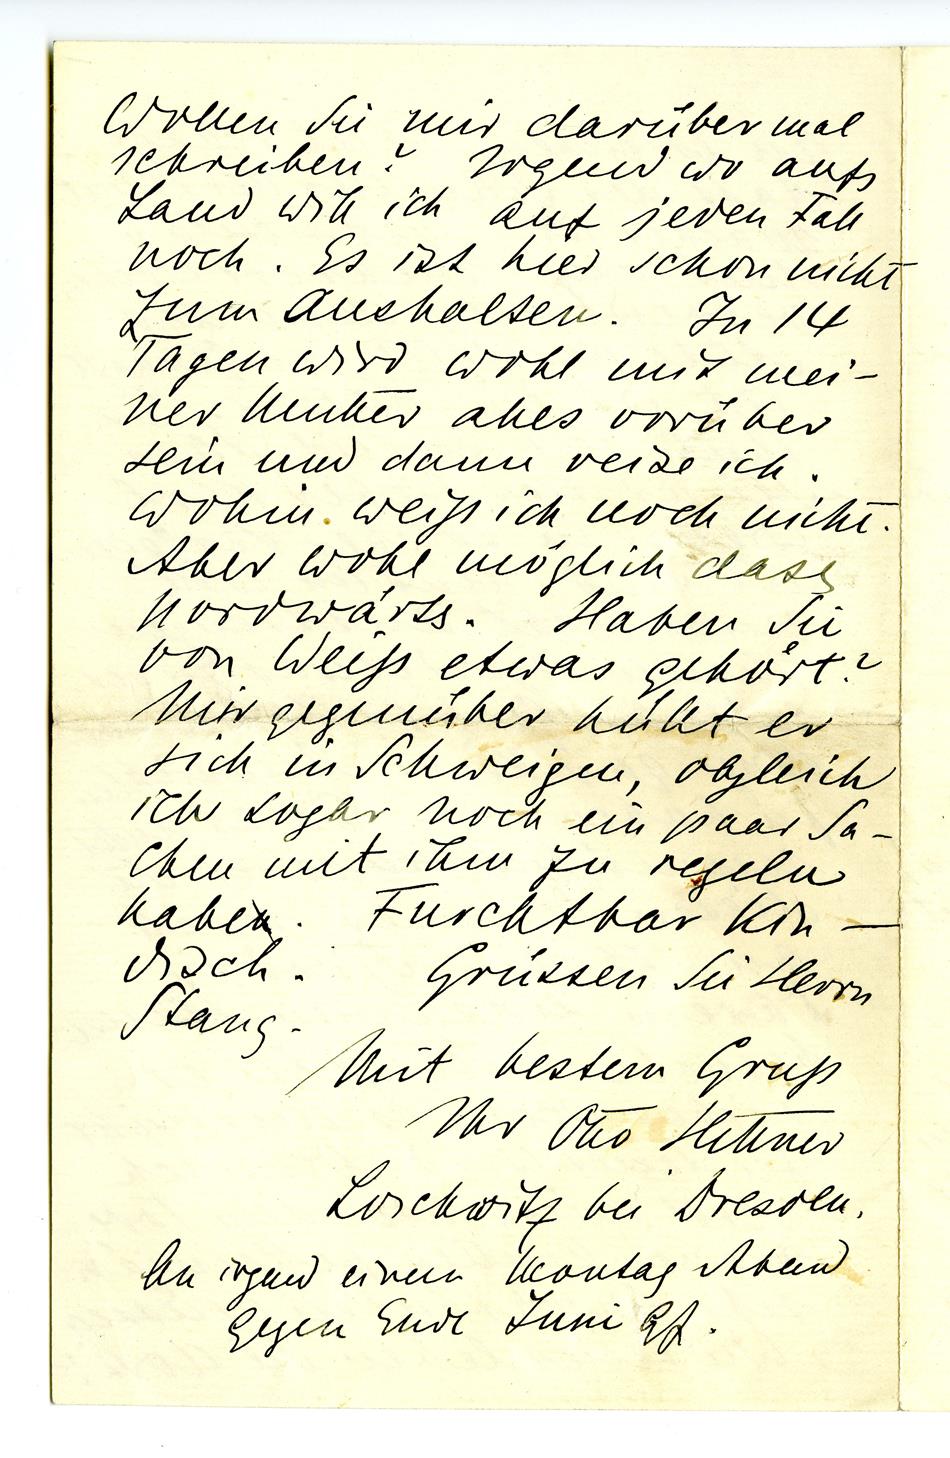 Wollen Sie mir darüber mal
schreiben? Irgend wo aufs
Land will ich auf jeden Fall
noch. Es ist hier schon nicht
zum Aushalten. In 14
Tagen wird wohl mit mei-
ner Mutter alles vorüber
sein und dann reise ich.
Wohin weiss ich noch nicht.
Aber wohl möglich dass
nordwärts. Haben Sie
von Weiss etwas gehört?
Mir gegenüber hüllt er
sich in Schweigen, obgleich
ich sogar noch ein paar Sa-
chen mit ihm zu regeln
habe. Furchtbar Kin-
disch. Grüssen Sie Herrn
Stang.
Mit bestem Gruss
Ihr Otto Hettner
Loschwitz bei Dresden.
An irgend einem Montag Abend
gegen Ende Juni